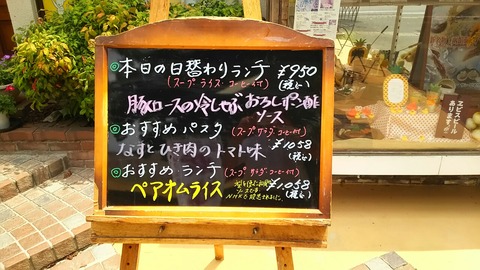 ◎本日の日替わりランチ ¥950
(スープ ライス コーヒー付) (税込)
豚ロースの冷しゃぶ おろしポン酢
ソース
◎おすすめ パスタ (スープ サラダ コーヒー付)
なすとひき肉のトマト味 ¥1058
(税込)
◎おすすめ ランチ (スープ サラダ コーヒー付)
ペアオムライス ¥1,058
(税込)
ヱビスビール
あります